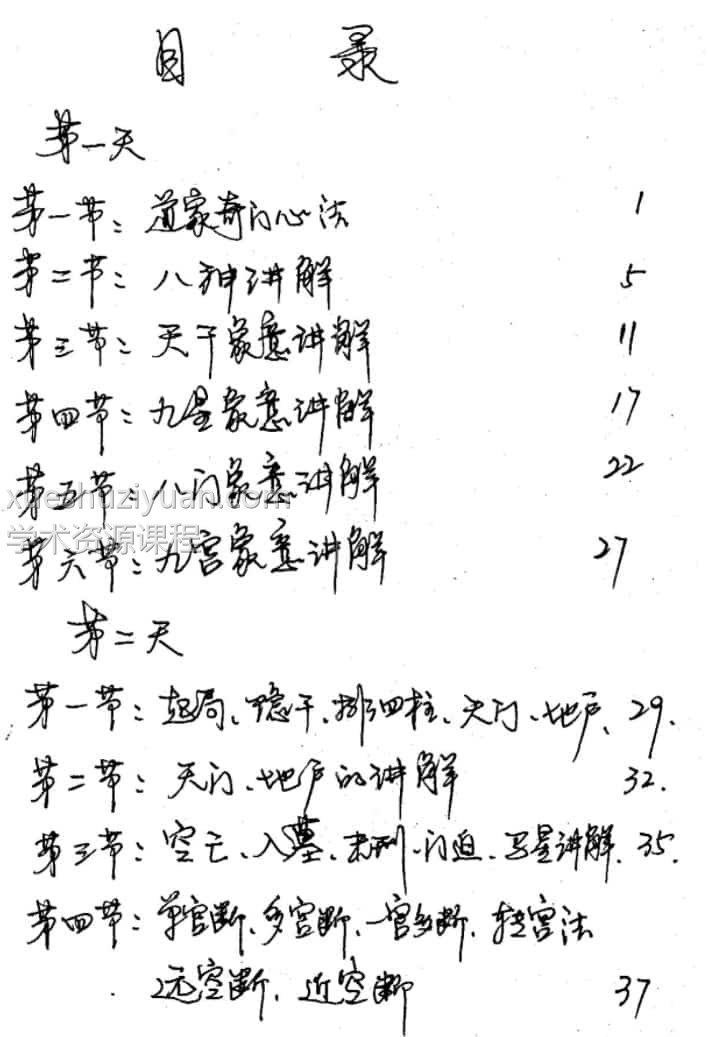 目 录
第一天
第一节：道家奇门心法 1
第二节：八神讲解 5
第三节：天干象意讲解 11
第四节：九星象意讲解 17
第五节：八门象意讲解 22
xueshuziyuan.com
学术资源课程
第六节：九宫象意讲解 27
第二天
第一节：起局、隐干、排四柱、天门、地户、29.
第二节：天门、地户的讲解 32.
第三节：空亡、入墓、击刑、门迫、马星讲解、35.
第四节：单宫断、多宫断、一宫多断、转宫法
远空断、近空断 37